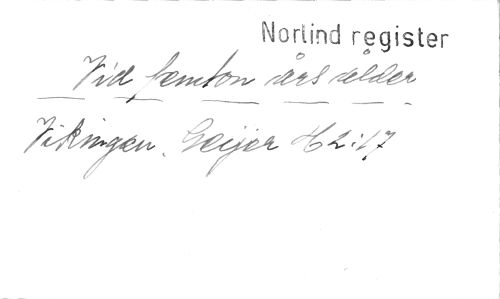 Norlind register
Vid femton års ålder
Vikingen. Geijer H2:17